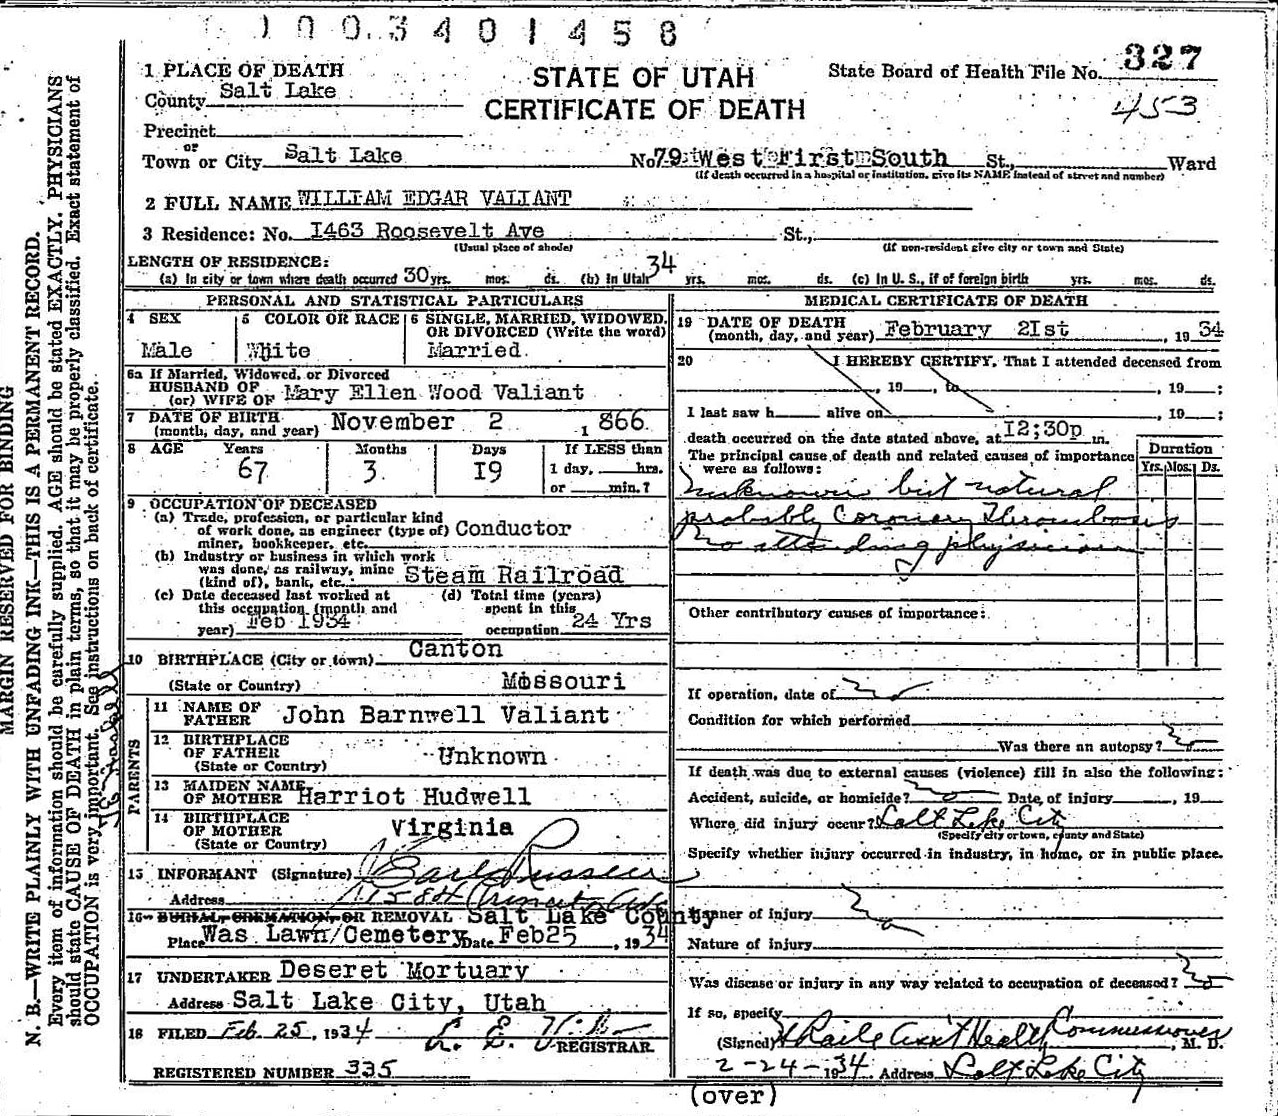 1003401458
1 PLACE OF DEATH
STATE OF UTAH
CERTIFICATE OF DEATH
State Board of Health File No. 327
453
County Salt Lake
Precinct
or
Town or City Salt Lake No 79 West First South St., Ward
(If death occurred in a hospital or institution, give its NAME instead of street and number)
2 FULL NAME WILLIAM EDGAR VALIANT
3 Residence: No. I463 Roosevelt Ave St.,
(Usual place of abode) (If non-resident give city or town and State)
LENGTH OF RESIDENCE:
(a) In city or town where death occurred 30 yrs. mos. ds. (b) In Utah 34 yrs. mos. ds. (c) In U. S., if of foreign birth yrs. mos. ds.
PERSONAL AND STATISTICAL PARTICULARS
4 SEX
Male
5 COLOR OR RACE
White
6 SINGLE, MARRIED, WIDOWED, OR DIVORCED (Write the word)
Married
6a If Married, Widowed, or Divorced
HUSBAND OF
(or) WIFE OF Mary Ellen Wood Valiant
7 DATE OF BIRTH
(month, day, and year) November 2 1866
8 AGE Years Months Days If LESS than
67 3 I9 1 day, hrs.
or min.?
9 OCCUPATION OF DECEASED
(a) Trade, profession, or particular kind
of work done, as engineer (type of) Conductor
miner, bookkeeper, etc.
(b) Industry or business in which work
was done, as railway, mine Steam Railroad
(kind of), bank, etc.
(c) Date deceased last worked at
this occupation (month and
year) Feb I934
(d) Total time (years)
spent in this
occupation 24 Yrs
10 BIRTHPLACE (City or town) Canton
(State or Country) Missouri
PARENTS
11 NAME OF
FATHER John Barnwell Valiant
12 BIRTHPLACE
OF FATHER Unknown
(State or Country)
13 MAIDEN NAME
OF MOTHER Harriot Hudwell
14 BIRTHPLACE
OF MOTHER Virginia
(State or Country)
15 INFORMANT (Signature) Earl Russell
Address
16 BURIAL, CREMATION, OR REMOVAL Salt Lake County
Place Was Lawn/Cemetery Date Feb25, 1934
17 UNDERTAKER Deseret Mortuary
Address Salt Lake City, Utah
18 FILED Feb. 25, 1934
REGISTRAR
REGISTERED NUMBER 335
MEDICAL CERTIFICATE OF DEATH
19 DATE OF DEATH
(month, day, and year) February 2Ist, 1934
20 I HEREBY CERTIFY, That I attended deceased from
, 19 , to , 19 ;
I last saw h alive on , 19 ;
death occurred on the date stated above, at I2;30p m.
The principal cause of death and related causes of importance
were as follows:
Duration
Yrs. Mos. Ds.
Unknown but natural
probably Coronary Thrombosis
No attending physician
Other contributory causes of importance:
If operation, date of no
Condition for which performed
Was there an autopsy? no
If death was due to external causes (violence) fill in also the following:
Accident, suicide, or homicide? no Date of injury , 19
Where did injury occur? Salt Lake City
(Specify city or town, county and State)
Specify whether injury occurred in industry, in home, or in public place.
Manner of injury no
Nature of injury
Was disease or injury in any way related to occupation of deceased? no
If so, specify
(Signed) Health Commissioner, M. D.
2-24-1934 Address Salt Lake City
(over)
MARGIN RESERVED FOR BINDING
N. B.—WRITE PLAINLY WITH UNFADING INK—THIS IS A PERMANENT RECORD.
Every item of information should be carefully supplied. AGE should be stated EXACTLY. PHYSICIANS
should state CAUSE OF DEATH in plain terms, so that it may be properly classified. Exact statement of
OCCUPATION is very important. See instructions on back of certificate.